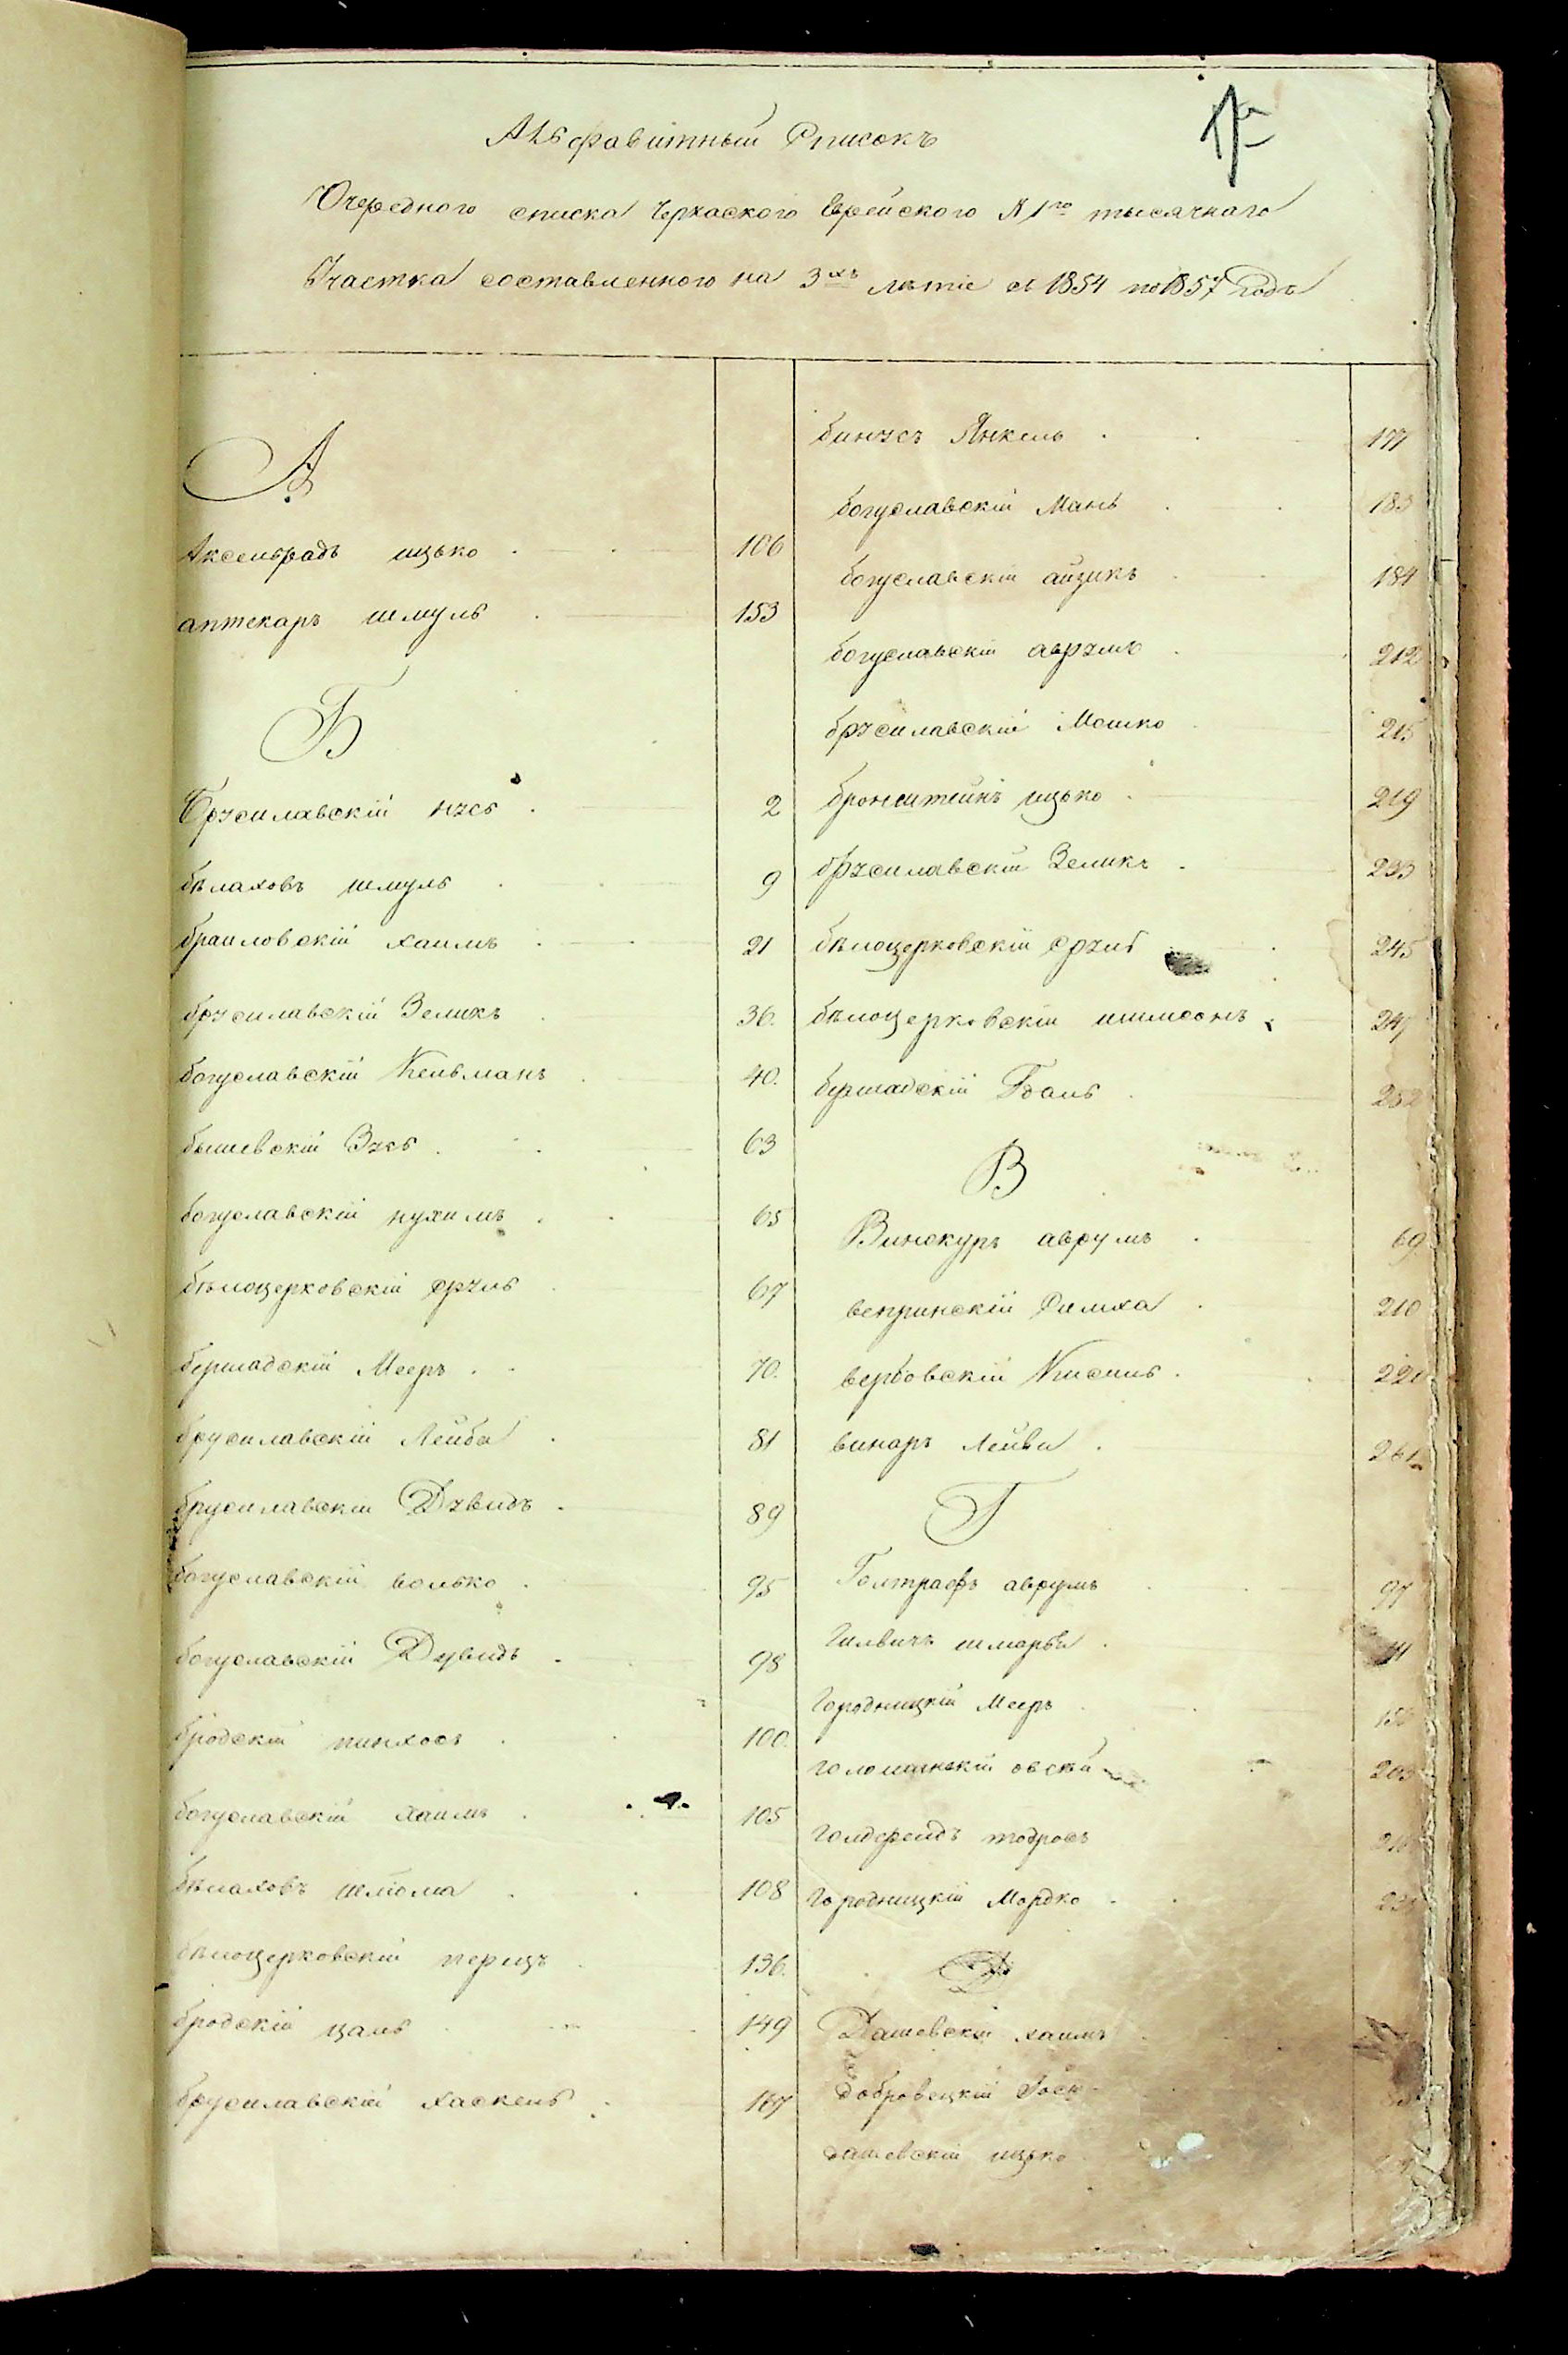 Алфавитный Списокъ
Очередного списка Черкаского Еврейского № 1го тысячнаго
Участка составленного на 3хъ летіе съ 1854 по 1857 Годъ
А
Аксельрадъ ицько 106
аптекаръ шмуль 153
Б
Брусилавскій нусъ 2
бѣлаховъ шмуль 9
браиловскій хаимъ 21
брусилавскій Зеликъ 36.
богуславскій Кельманъ 40.
бышевскій Зусъ 63
богуславскій нухимъ 65
бѣлоцерковскій сруль 67
бершадскій Мееръ 70.
брусилавскій Лейба 81
брусилавскій Дувидъ 89
богуславскій волько 95
богуславскій Дувидъ 98
бродскій пинхосъ 100.
богуславскій хаимъ 105
бѣлаховъ шлома 108
бѣлоцерковскій перецъ 136.
бродскій цаль 149
брусилавскій хаскель 167
бинусъ Янкель 177
богуславскій Мань 183
богуславскій айзикъ 184
богуславскій аврумъ 212
брусилавскій Мошко 215
бронштейнъ ицько 219
брусилавскій Зеликъ 233
бѣлоцерковскій сруль 245
бѣлоцерковскій шимсонъ 247
бершадскій Гдаль 252
В
Винокуръ аврумъ 69
вепринскій Симха 210
вербовскій Кисиль 220
винаръ Лейви 261
Г
Голтрафъ аврумъ 97
Гилвичъ шмарья
Городницкій Мееръ
головагнскій овсѣй 203
голдфелдъ тодросъ
Городницкій Мордко
Д
Дашевскій хаимъ
добровецкій
дашевскій ицько